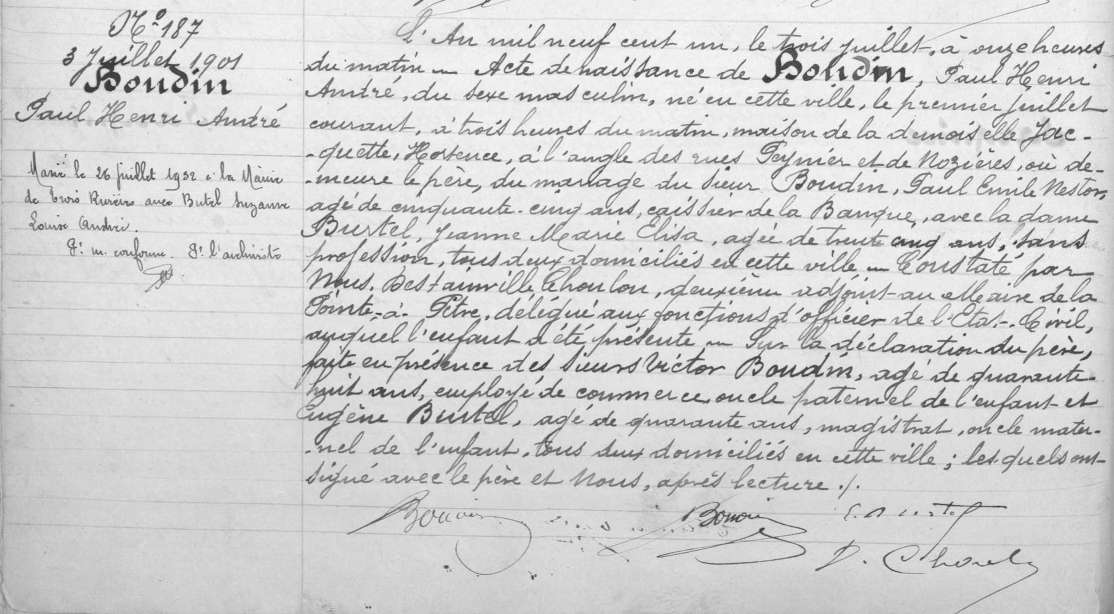 N° 187
3 Juillet 1901
Boudin
Paul Henri André
Marié le 26 juillet 1932 à la Mairie
de Trois Rivières avec Butel Suzanne
Louise Andrée.
Pr m. conforme. Pr l'archiviste
L'An mil neuf cent un, le trois juillet, à onze heures
du matin — Acte de naissance de Boudin, Paul Henri
André, du sexe masculin, né en cette ville, le premier juillet
courant, à trois heures du matin, maison de la demoiselle Jac-
-quette, Hortence, à l'angle des rues Peynier et de Nozières, où de-
-meure le père, du mariage du sieur Boudin, Paul Emile Nestor,
agé de cinquante-cinq ans, caissier de la Banque, avec la dame
Burtel, Jeanne Marie Elisa, agée de trente cinq ans, sans
profession, tous deux domiciliés en cette ville — Constaté par
Nous, Destainville Choulon, deuxième adjoint au Maire de la
Pointe-à-Pitre, délégué aux fonctions d'officier de l'Etat-Civil,
auquel l'enfant a été présenté — Sur la déclaration du père,
faite en présence des sieurs Victor Boudin, agé de quarante-
huit ans, employé de commerce oncle paternel de l'enfant et
Eugène Burtel, agé de quarante ans, magistrat, oncle mater-
-nel de l'enfant, tous deux domiciliés en cette ville ; lesquels ont
signé avec le père et Nous, après lecture ./.